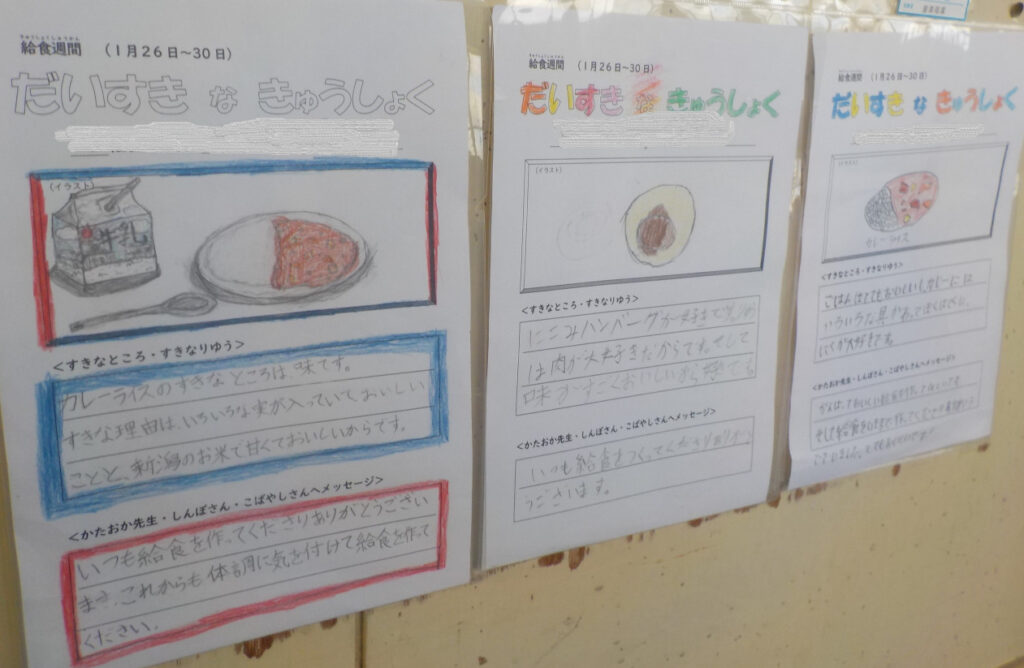 きゅうしょくしゅうかん
給食週間 （1月26日～30日）
だいすき な きゅうしょく
（イラスト）
牛乳
＜すきなところ・すきなりゆう＞
カレーライスのすきなところは、味です。
すきな理由は、いろいろな実が入っていて、おいしい
ことと、新潟のお米で甘くておいしいからです。
＜かたおか先生・しんぼさん・こばやしさんへメッセージ＞
いつも給食を作ってくださりありがとうござい
ます。これからも体調に気を付けて給食を作って
ください。
給食週間 （1月26日～30日）
だいすき な きゅうしょく
（イラスト）
＜すきなところ・すきなりゆう＞
にこみハンバーグが好きで
は肉が大好きだからです。そして
味がすごくおいしい
＜かたおか先生・しんぼさん・こばやしさんへメッセージ＞
いつも給食をつくってくださりありが
うございます。
給食週間 （1月26日～30日）
だいすき な きゅうしょく
（イラスト）
カレーライス
＜すきなところ・すきなりゆう＞
ごはんはとてもおいしいし、カレーには
いろいろな具があってぼくはとくに、
にくが大好きです。
＜かたおか先生・しんぼさん・こばやしさんへメッセージ＞